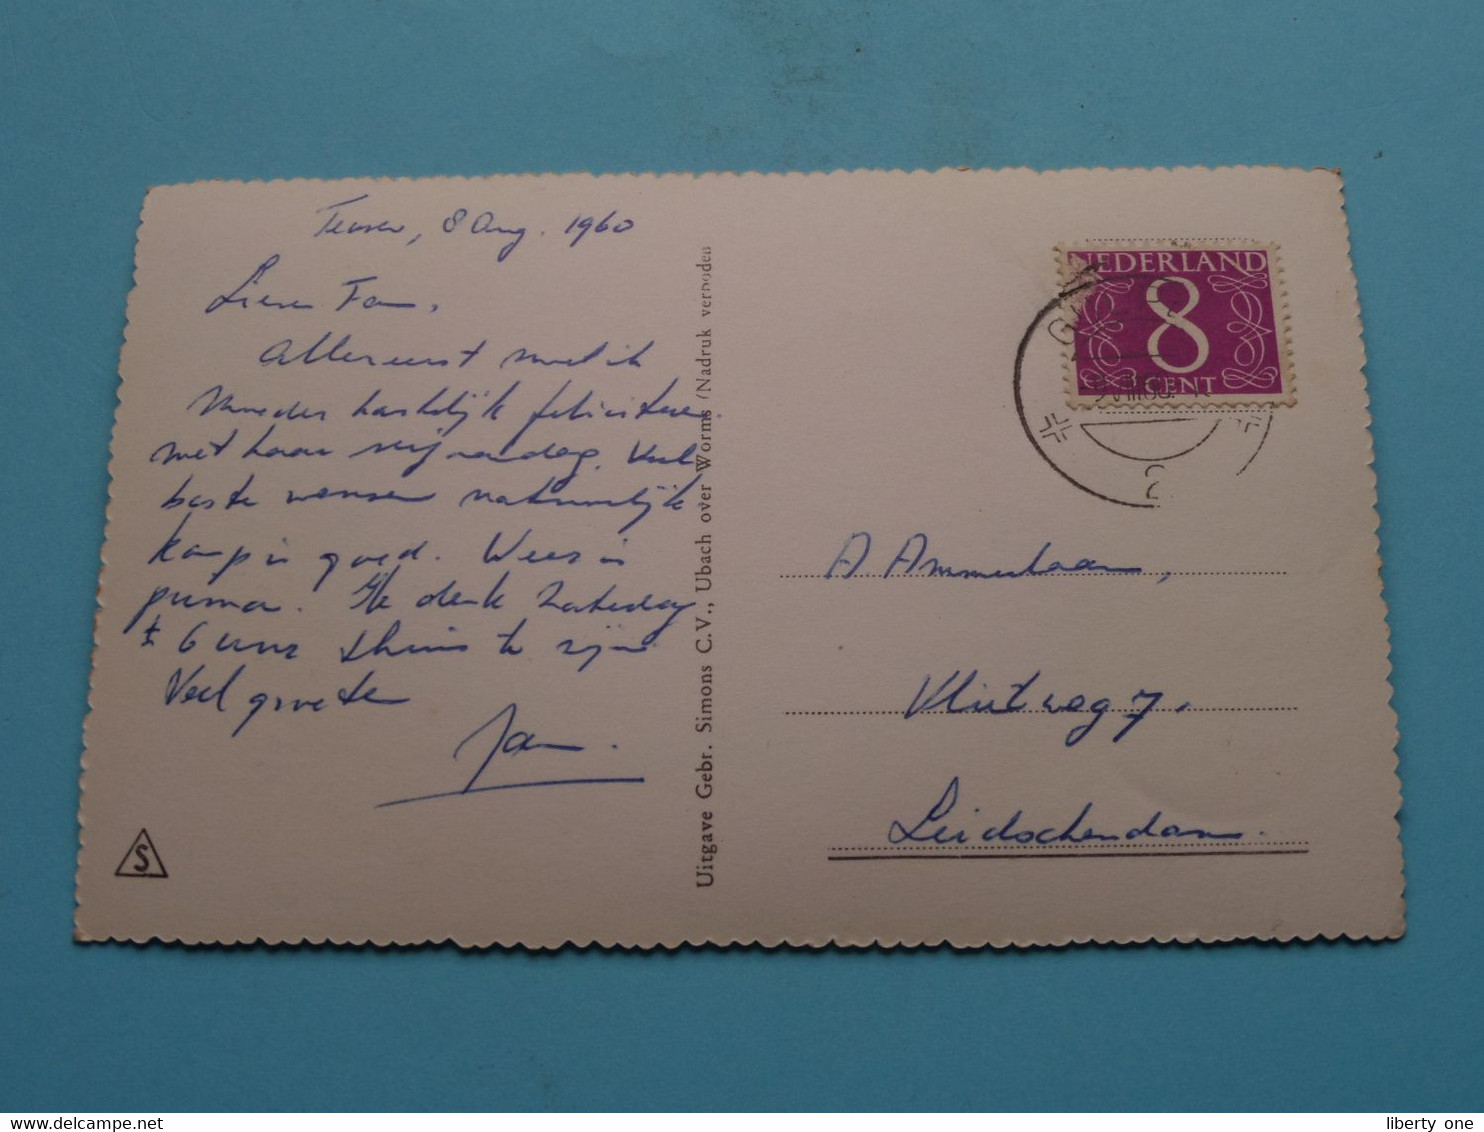 8 Aug. 1960
Lieve Fam.
Allereerst moet ik
Moeder hartelijk feliciteren
met haar verjaardag. Veel
beste wensen natuurlijk
Kamp is goed. Weer is
prima. Ik denk zaterdag
± 6 uur thuis te zijn
Veel groeten
Jan.
S
Uitgave Gebr. Simons C.V., Ubach over Worms (Nadruk verboden
NEDERLAND
8
CENT
2
A Ammerlaan,
Vlietweg 7.
Leidschendam.
delcampe.net
liberty one